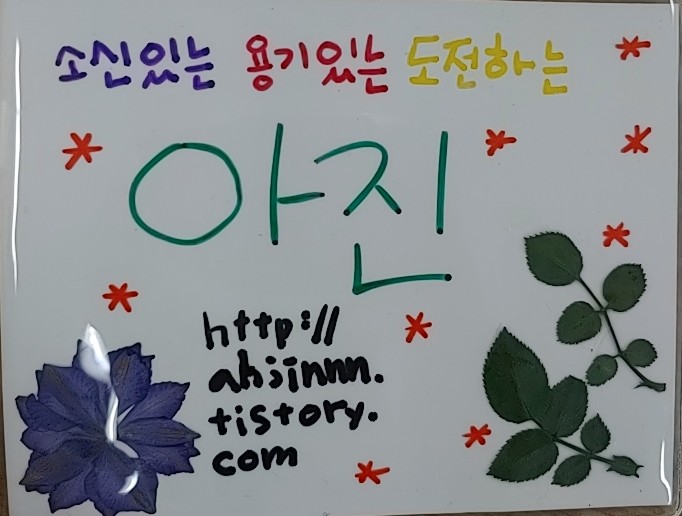 소신있는 용기있는 도전하는
아진
http://
ahjinnn.
tistory.
com